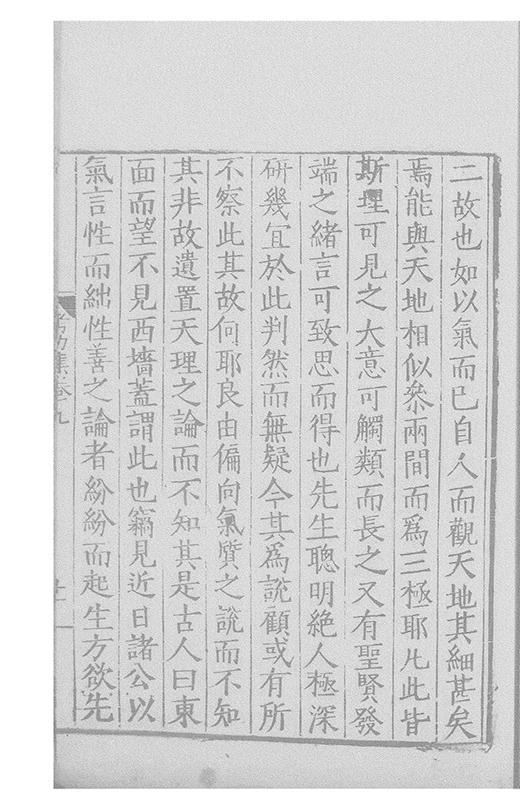 二故也如以氣而已自人而觀天地其細甚矣
焉能與天地相似叅兩間而爲三極耶凡此皆
斯理可見之大意可觸類而長之又有聖賢發
端之緒言可致思而得也先生聰明絶人極深
研幾宜於此判然而無疑今其爲說顧或有所
不察此其故何耶良由偏向氣質之說而不知
其非故遺置天理之論而不知其是古人曰東
面而望不見西墻蓋謂此也竊見近日諸公以
氣言性而絀性善之論者紛紛而起生方欲先
集卷九